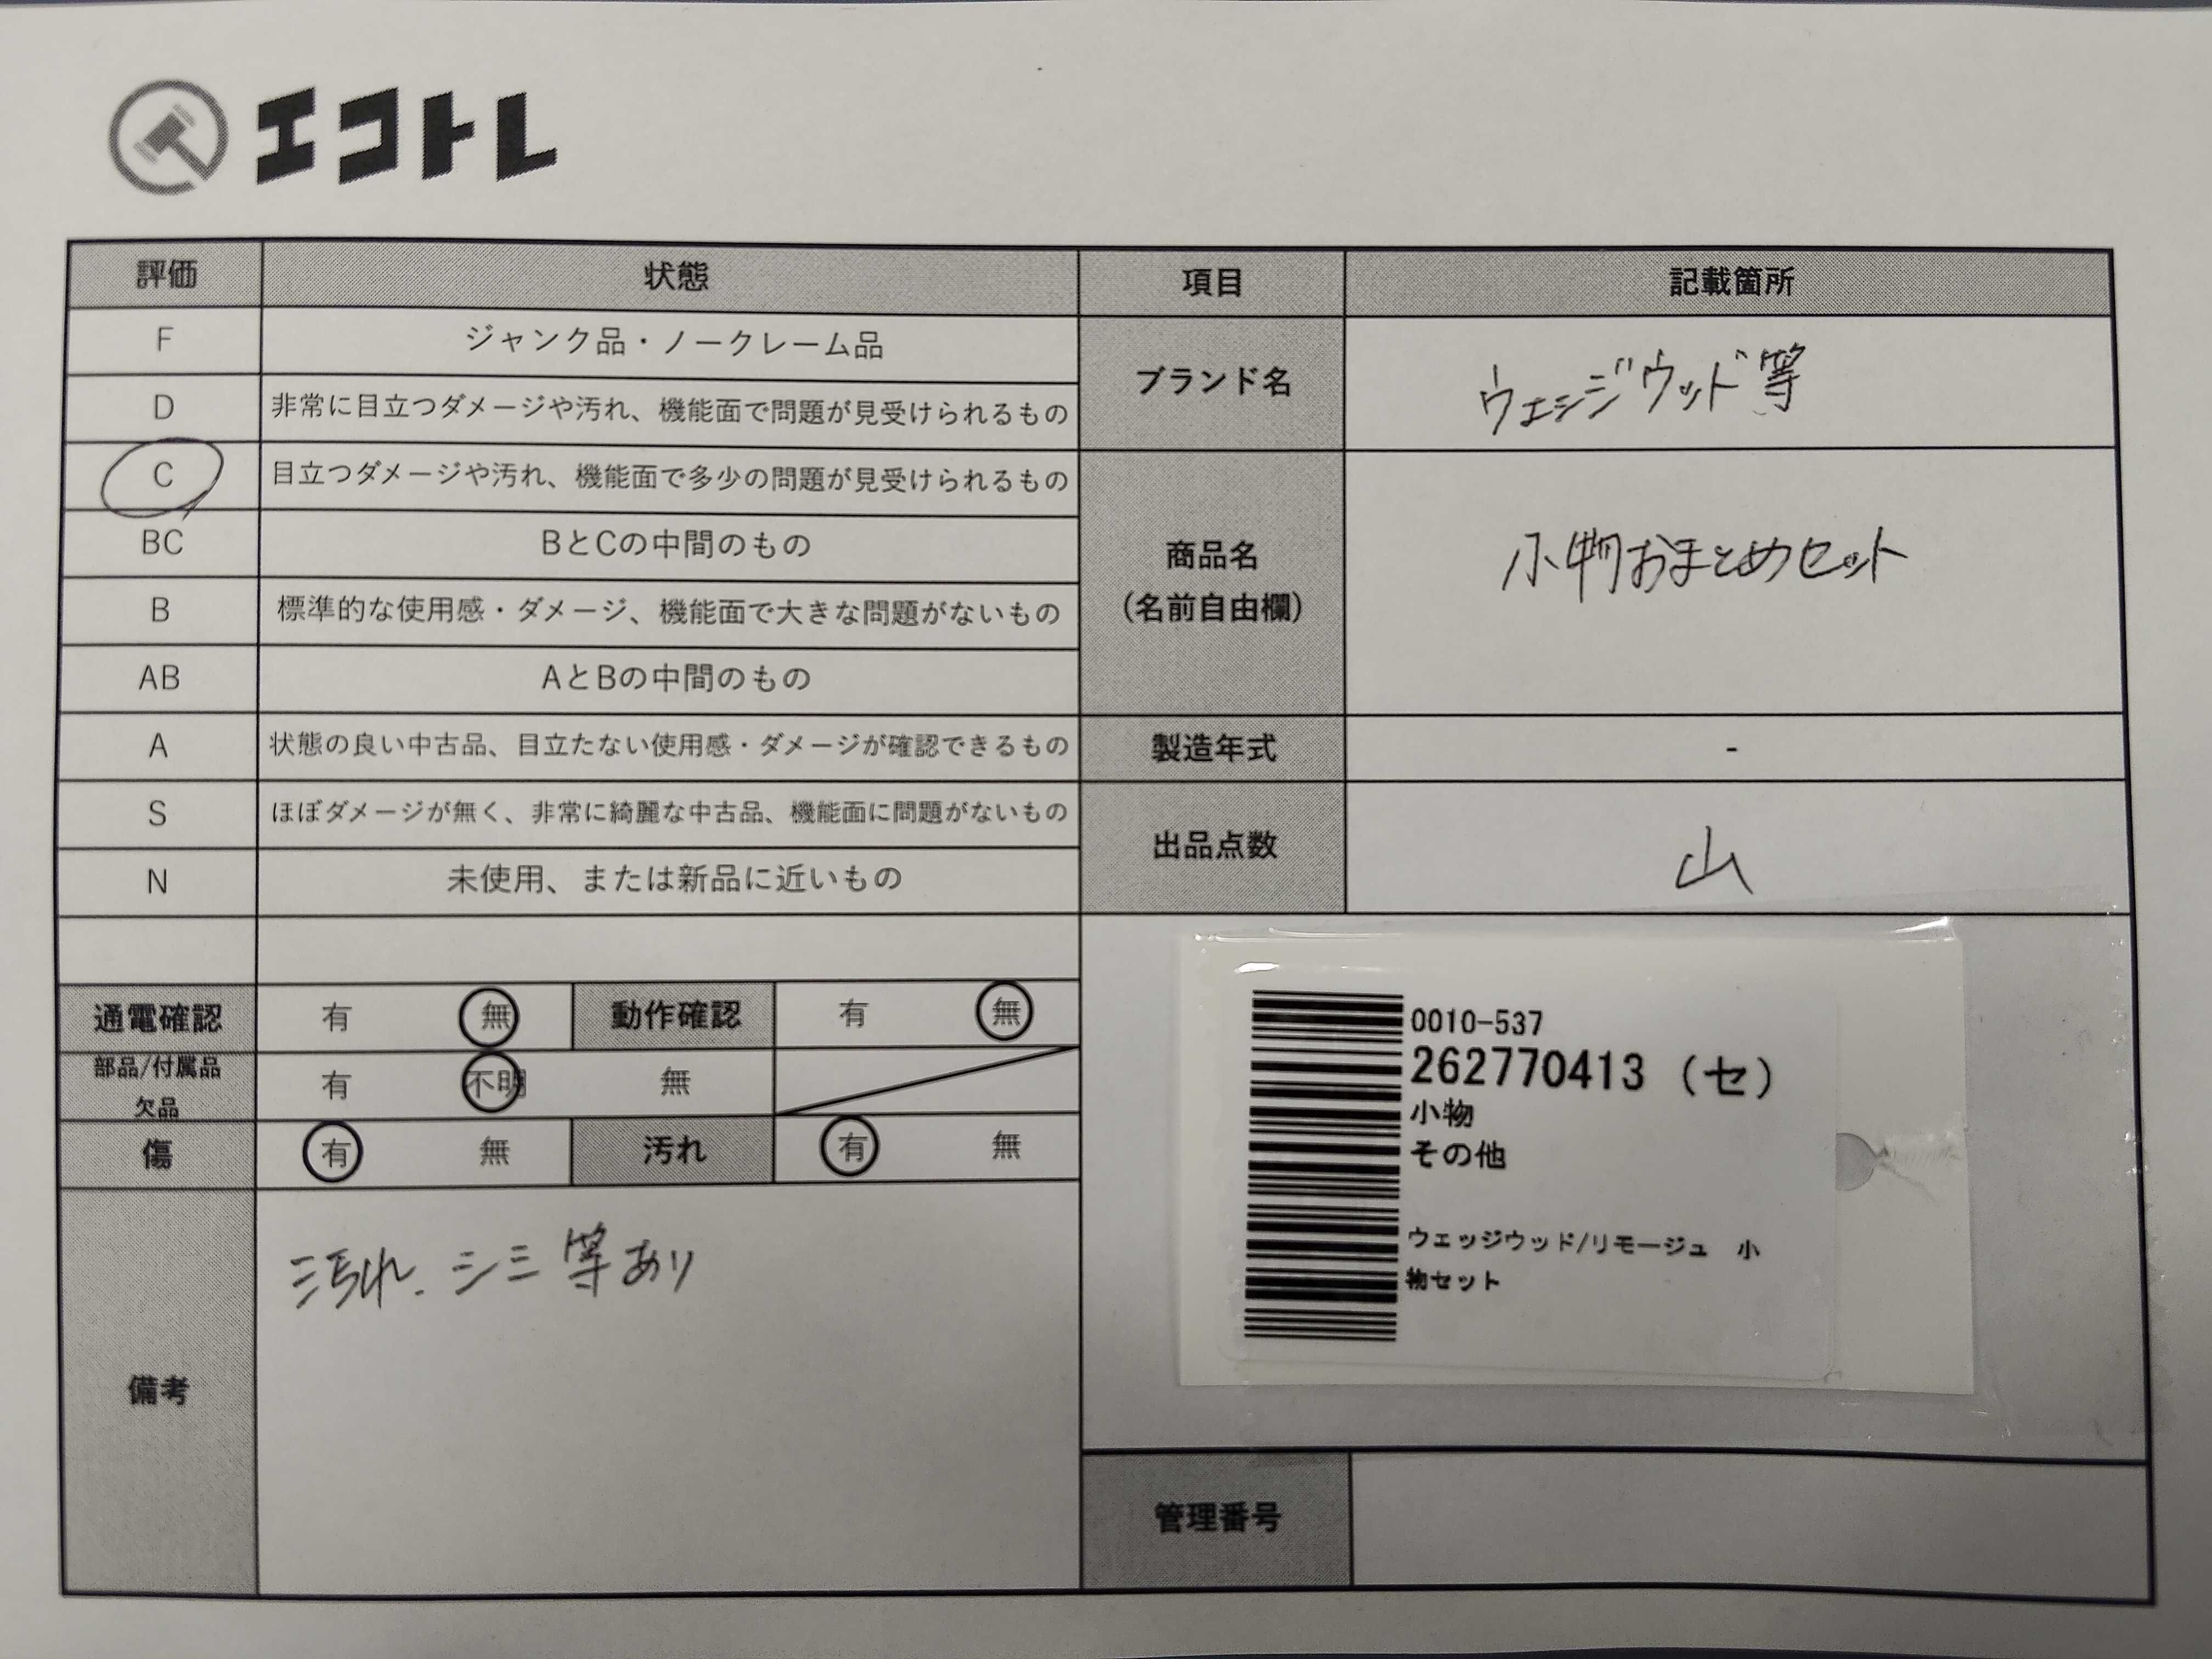 エコトレ
評価 状態 項目 記載箇所
F ジャンク品・ノークレーム品
D 非常に目立つダメージや汚れ、機能面で問題が見受けられるもの
ブランド名 ウェジウッド等
C 目立つダメージや汚れ、機能面で多少の問題が見受けられるもの
BC BとCの中間のもの
商品名
(名前自由欄)
小物おまとめセット
B 標準的な使用感・ダメージ、機能面で大きな問題がないもの
AB AとBの中間のもの
A 状態の良い中古品、目立たない使用感・ダメージが確認できるもの
製造年式 -
S ほぼダメージが無く、非常に綺麗な中古品、機能面に問題がないもの
出品点数 山
N 未使用、または新品に近いもの
通電確認 有 無 動作確認 有 無
部品/付属品
欠品
有 不明 無
傷 有 無 汚れ 有 無
備考
汚れ、シミ等あり
0010-537
262770413 (セ)
小物
その他
ウェッジウッド/リモージュ 小
物セット
管理番号